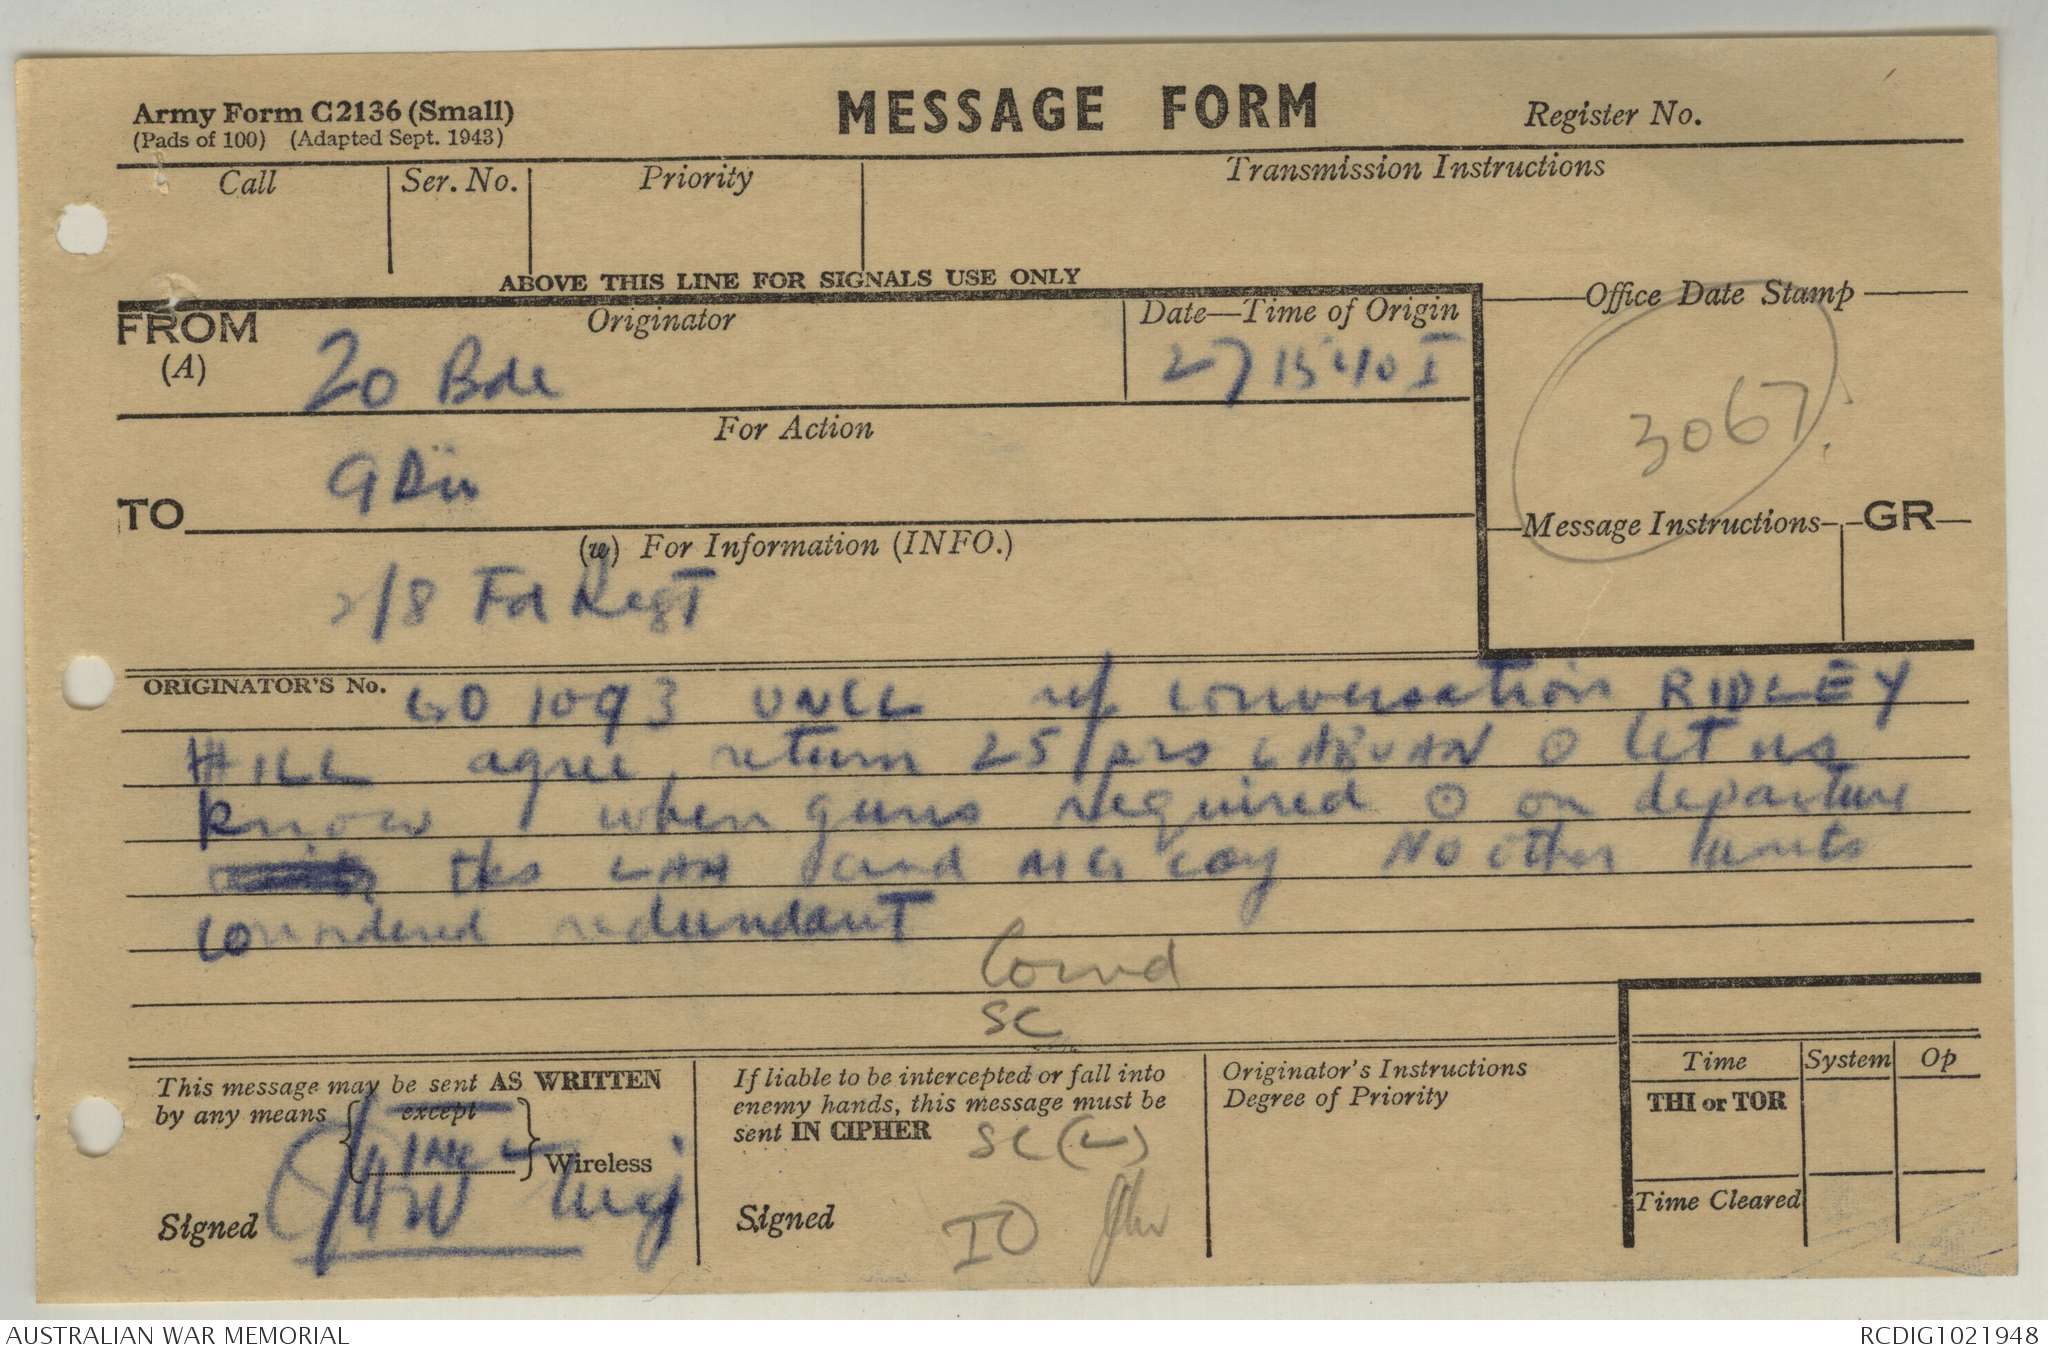 Army Form C2136 (Small)
(Pads of 100) (Adapted Sept. 1943)
MESSAGE FORM
Register No.
Call
Ser. No.
Priority
Transmission Instructions
ABOVE THIS LINE FOR SIGNALS USE ONLY
FROM
(A)
Originator
20 Bde
Date—Time of Origin
271540 I
Office Date Stamp
3067
For Action
9 Div
TO
(W) For Information (INFO.)
2/8 Fd Regt
Message Instructions
GR
ORIGINATOR'S No. GO 1093 UNCL ref conversation RIDLEY
HILL agree return 25 prs LABUAN ⊙ let us
know when guns required ⊙ on departure
tks LAA and MG coy No other units
considered redundant
Comd
SC
This message may be sent AS WRITTEN
by any means except
Wireless
Signed
Maj
If liable to be intercepted or fall into
enemy hands, this message must be
sent IN CIPHER
SC (L)
Signed
IO
Originator's Instructions
Degree of Priority
Time
System
Op
THI or TOR
Time Cleared
AUSTRALIAN WAR MEMORIAL
RCDIG1021948